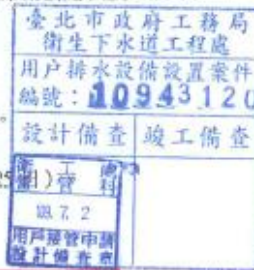 臺北市政府工務局
衛生下水道工程處
用戶排水設備設置案件
編號：10943120
設計備查 竣工備查
衛工處
營管科
日)
109.7.2
用戶接管申請
設計備查章